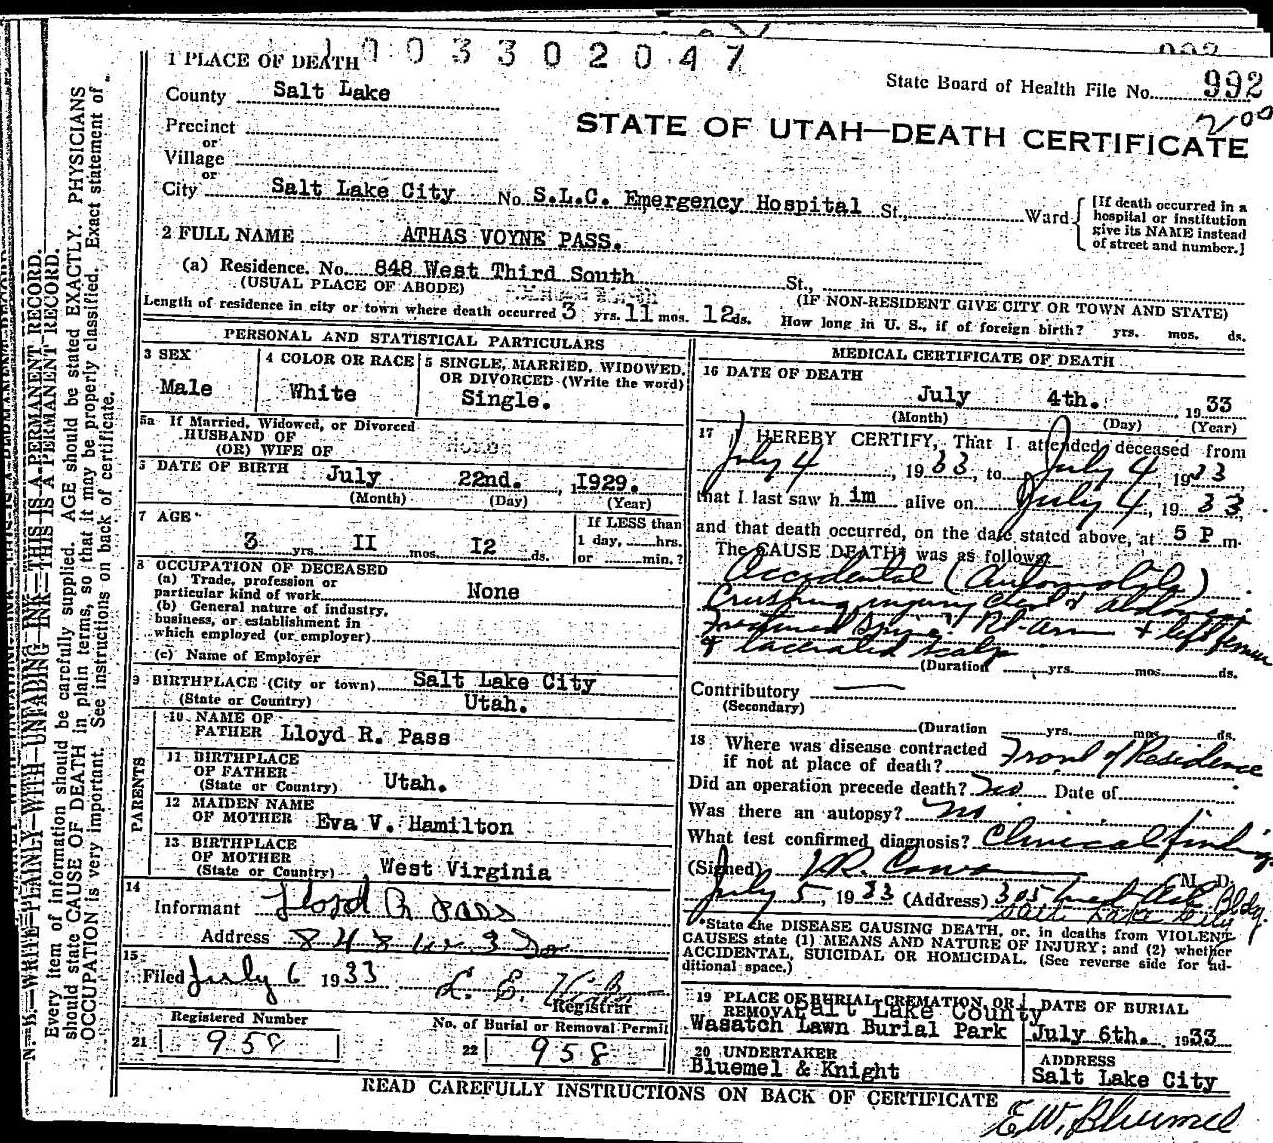 1003302047
992
1 PLACE OF DEATH
State Board of Health File No. 992
County Salt Lake
200
Precinct
or
STATE OF UTAH—DEATH CERTIFICATE
Village
or
City Salt Lake City No. S.L.C. Emergency Hospital St., Ward
[If death occurred in a
hospital or institution
give its NAME instead
of street and number.]
2 FULL NAME ATHAS VOYNE PASS.
(a) Residence. No. 848 West Third South St.,
(USUAL PLACE OF ABODE)
(IF NON-RESIDENT GIVE CITY OR TOWN AND STATE)
Length of residence in city or town where death occurred 3 yrs. 11 mos. 12 ds. How long in U. S., if of foreign birth? yrs. mos. ds.
PERSONAL AND STATISTICAL PARTICULARS
3 SEX
Male
4 COLOR OR RACE
White
5 SINGLE, MARRIED, WIDOWED,
OR DIVORCED (Write the word)
Single.
5a If Married, Widowed, or Divorced
HUSBAND OF
(OR) WIFE OF
DATE OF BIRTH
July 22nd. , 1929.
(Month) (Day) (Year)
7 AGE
3 yrs. II mos. I2 ds.
If LESS than
1 day, hrs.
or min.?
8 OCCUPATION OF DECEASED
(a) Trade, profession or
particular kind of work None
(b) General nature of industry,
business, or establishment in
which employed (or employer)
(c) Name of Employer
9 BIRTHPLACE (City or town) Salt Lake City
(State or Country) Utah.
PARENTS
10 NAME OF
FATHER Lloyd R. Pass
11 BIRTHPLACE
OF FATHER
(State or Country) Utah.
12 MAIDEN NAME
OF MOTHER Eva V. Hamilton
13 BIRTHPLACE
OF MOTHER
(State or Country) West Virginia
14
Informant Lloyd R Pass
Address 848 W 3 So
15
Filed July 6 1933 L. E.
Registrar
Registered Number
21 958
No. of Burial or Removal Permit
22 958
MEDICAL CERTIFICATE OF DEATH
16 DATE OF DEATH
July 4th. , 1933
(Month) (Day) (Year)
17 I HEREBY CERTIFY, That I attended deceased from
July 4, 1933, to July 4 1933
that I last saw h im alive on July 4, 1933,
and that death occurred, on the date stated above, at 5 P m.
The CAUSE DEATH* was as follows:
Accidental (Automobile)
Crushing injury chest & abdomen
Fractured Rt. arm + left femur
+ lacerated scalp
(Duration yrs. mos. ds.
Contributory —
(Secondary)
(Duration yrs. mos. ds.
18 Where was disease contracted
if not at place of death? Front of Residence
Did an operation precede death? No Date of
Was there an autopsy? No
What test confirmed diagnosis? Clinical findings
(Signed) M. D.
July 5, 1933 (Address) 305 Bldg.
Salt Lake City
*State the DISEASE CAUSING DEATH, or, in deaths from VIOLENT
CAUSES state (1) MEANS AND NATURE OF INJURY; and (2) whether
ACCIDENTAL, SUICIDAL OR HOMICIDAL. (See reverse side for ad-
ditional space.)
19 PLACE OF BURIAL, CREMATION, OR
REMOVAL Salt Lake County
Wasatch Lawn Burial Park
DATE OF BURIAL
July 6th. 1933
20 UNDERTAKER
Bluemel & Knight
ADDRESS
Salt Lake City
READ CAREFULLY INSTRUCTIONS ON BACK OF CERTIFICATE
E.W. Bluemel
N. B.—WRITE PLAINLY—WITH UNFADING INK—THIS IS A PERMANENT RECORD.
Every item of information should be carefully supplied. AGE should be stated EXACTLY. PHYSICIANS
should state CAUSE OF DEATH in plain terms, so that it may be properly classified. Exact statement of
OCCUPATION is very important. See instructions on back of certificate.